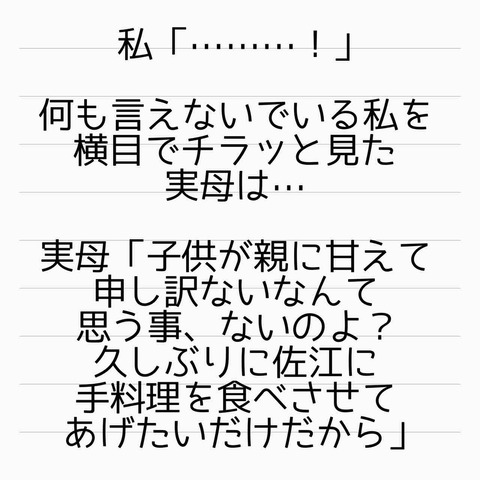 私「………！」
何も言えないでいる私を
横目でチラッと見た
実母は…
実母「子供が親に甘えて
申し訳ないなんて
思う事、ないのよ？
久しぶりに佐江に
手料理を食べさせて
あげたいだけだから」